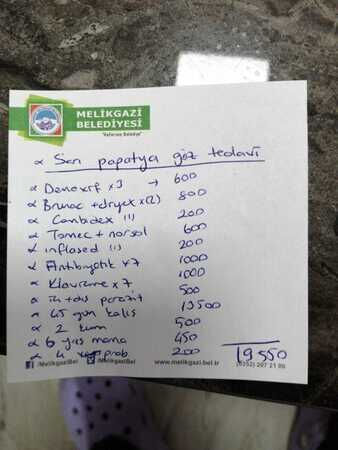 MELİKGAZİ
BELEDİYESİ
α Sarı papatya göz tedavi
α Dexaxrf x3 → 600
α Brunac + dryex x(2) 800
α Combidex (1) 200
α Tomec + norsol 600
α inflased (1) 200
α Antibiyotik x7 1000
α Klavrome x7 1000
α iç + dış parazit 500
α 45 gün kalış 13500
α 2 500
α 6 yaş mama 450
α 4 prob 200
19550
/MelikgaziBel
/MelikgaziBel
www.melikgazi.bel.tr
(0352) 207 21 00